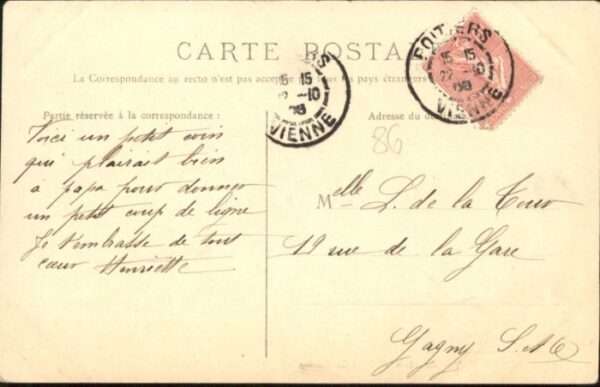 CARTE POSTA
La Correspondance au recto n'est pas accep les pays étrangers
Partie réservée à la correspondance :
Adresse du des
POITIERS
15 15
22 -10
VIENNE
15
-10
VIENNE
86
Voici un petit coin
qui plairait bien
à papa pour donner
un petit coup de ligne
Je t'embrasse de tout
cœur Henriette
Mlle L. de la Tour
12 rue de la Gare
Gagny S. & O